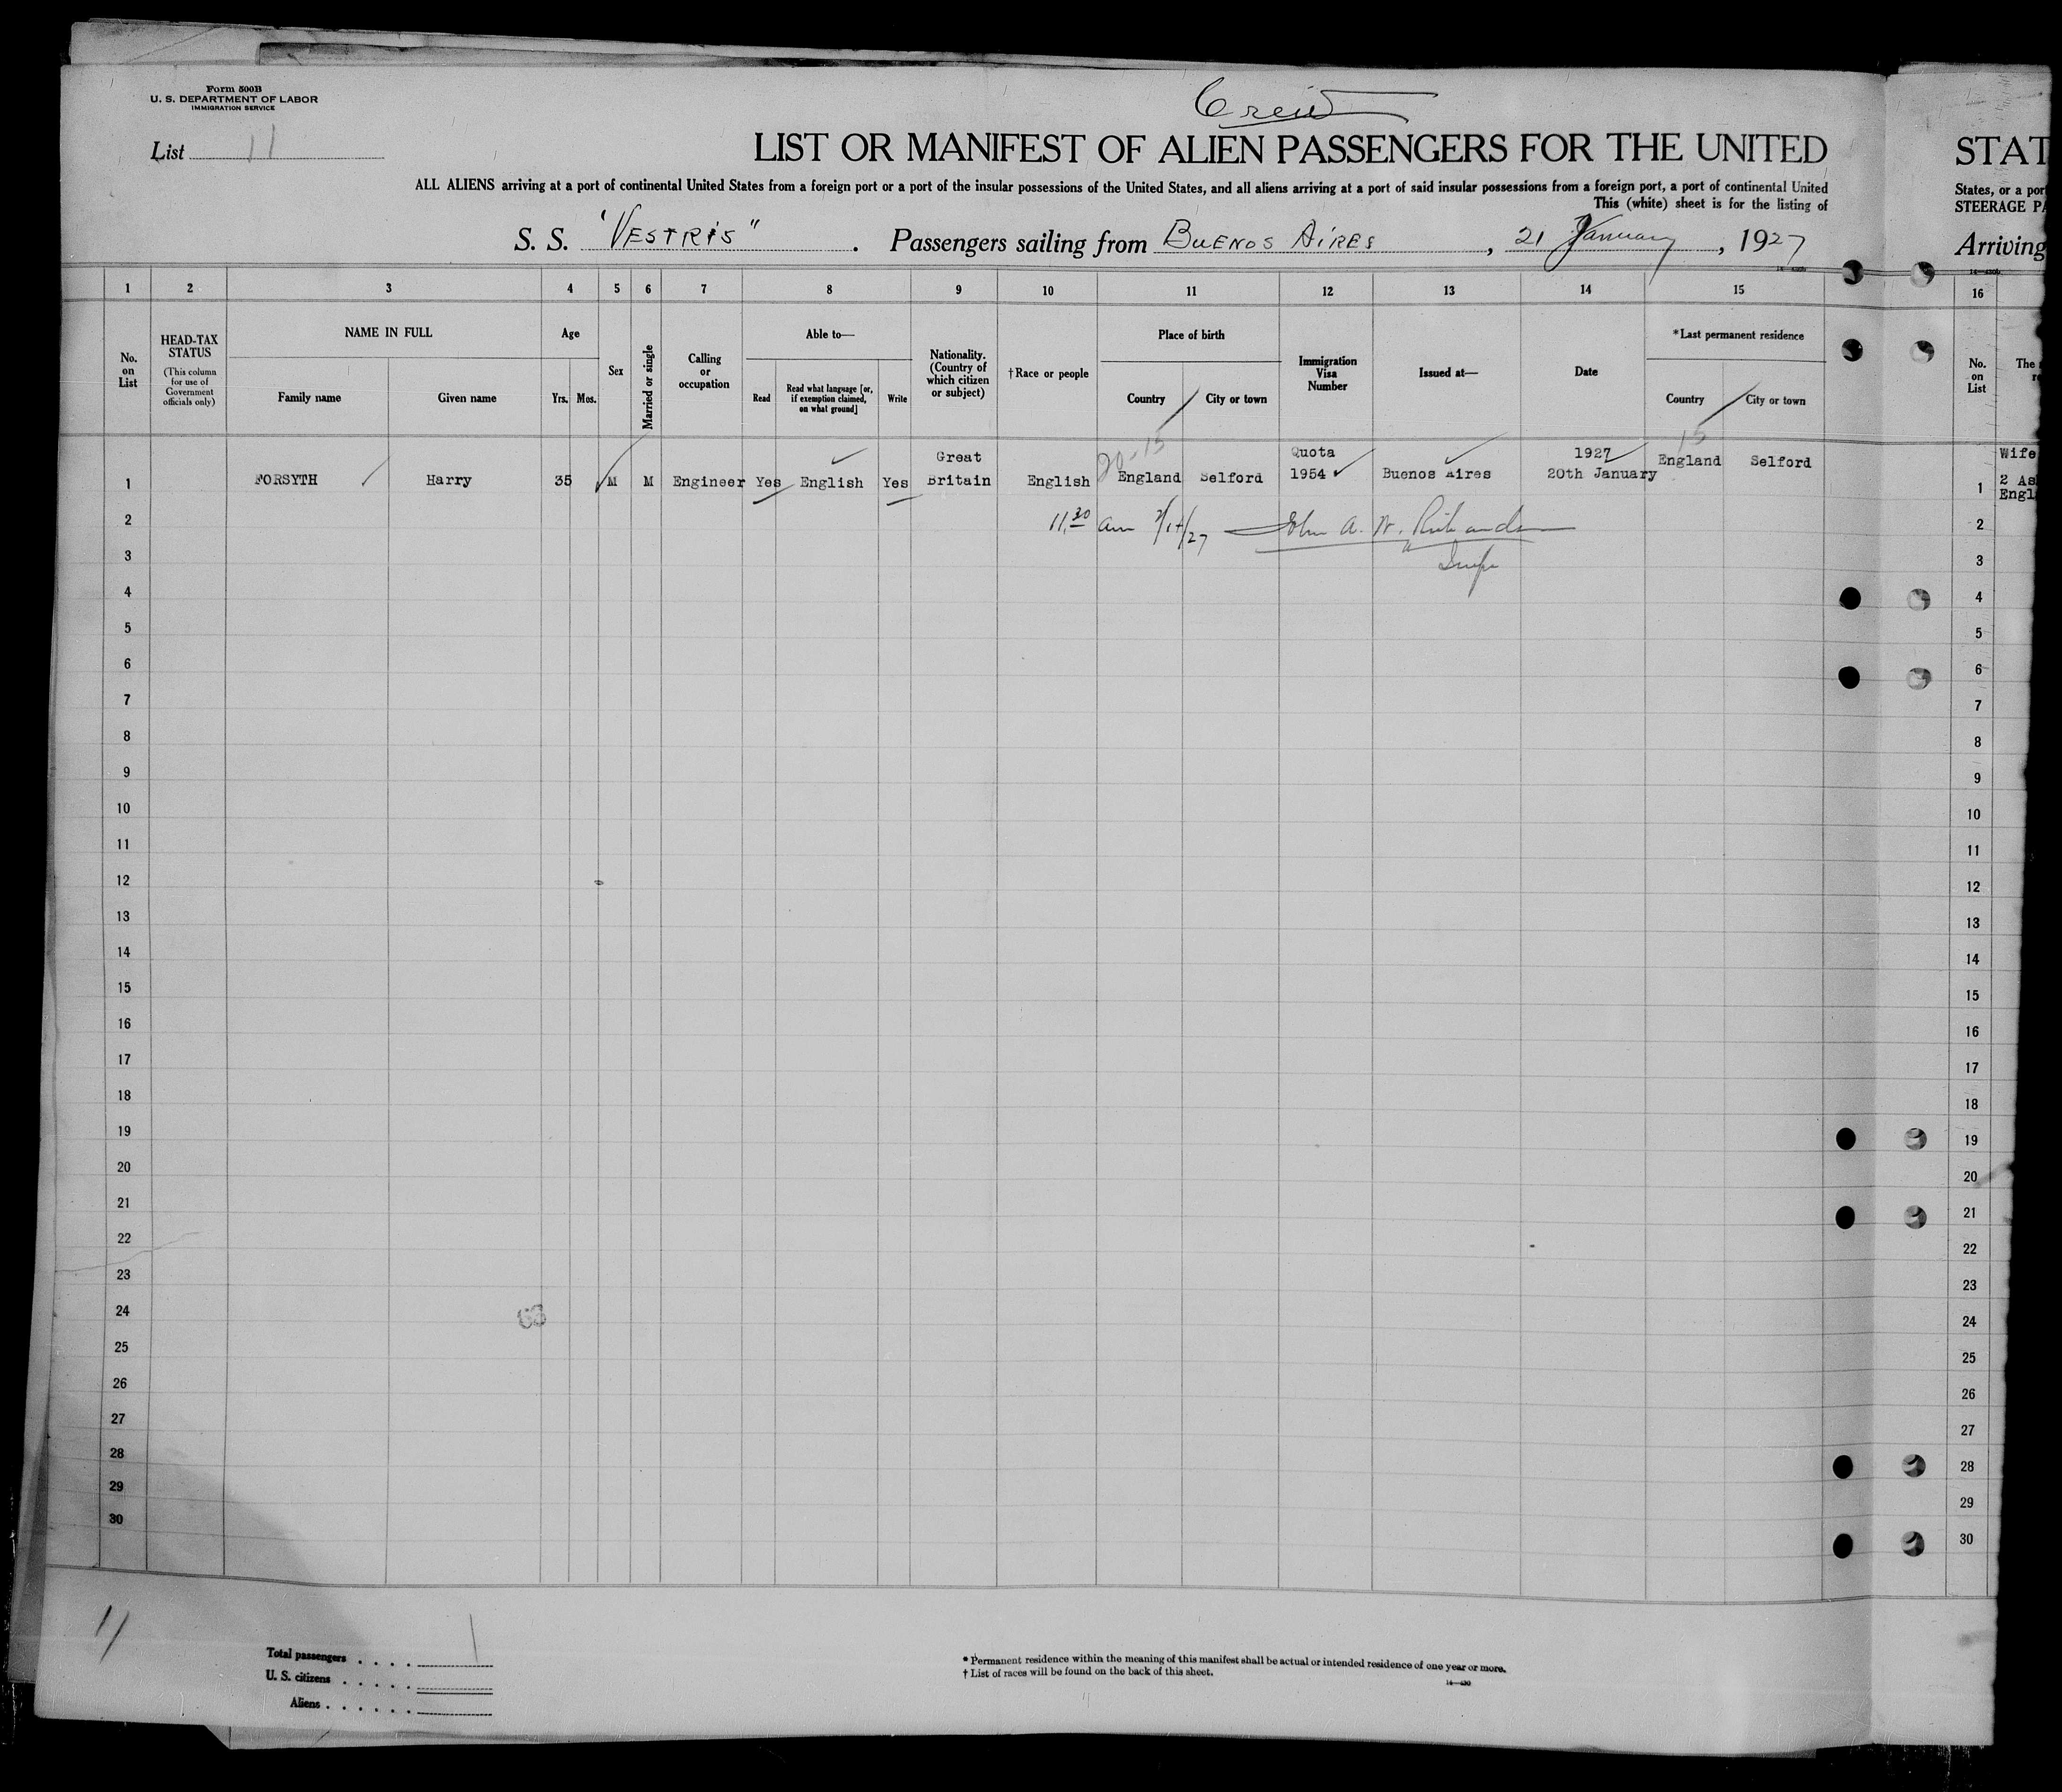 Form 500B
U. S. DEPARTMENT OF LABOR
IMMIGRATION SERVICE
List 11
LIST OR MANIFEST OF ALIEN PASSENGERS FOR THE UNITED
STAT
ALL ALIENS arriving at a port of continental United States from a foreign port or a port of the insular possessions of the United States, and all aliens arriving at a port of said insular possessions from a foreign port, a port of continental United
States, or a por
This (white) sheet is for the listing of
STEERAGE PA
S. S. "VESTRIS". Passengers sailing from BUENOS AIRES, 21 January, 1927
Arriving
1 2 3 4 5 6 7 8 9 10 11 12 13 14 15 16
No. on List
HEAD-TAX STATUS
(This column for use of Government officials only)
NAME IN FULL
Family name Given name
Age
Yrs. Mos.
Sex
Married or single
Calling or occupation
Able to—
Read
Read what language [or, if exemption claimed, on what ground]
Write
Nationality. (Country of which citizen or subject)
†Race or people
Place of birth
Country City or town
Immigration Visa Number
Issued at—
Date
*Last permanent residence
Country City or town
No. on List
The
1 FORSYTH Harry 35 M M Engineer Yes English Yes Great Britain English England Selford Quota 1954 Buenos Aires 1927 20th January England Selford
20-15
15
1 Wife
2 As
Engl
11.30 am John A. W.
2 2
3 3
4 4
5 5
6 6
7 7
8 8
9 9
10 10
11 11
12 12
13 13
14 14
15 15
16 16
17 17
18 18
19 19
20 20
21 21
22 22
23 23
24 24
25 25
26 26
27 27
28 28
29 29
30 30
11
Total passengers . . . . 1
U. S. citizens . . . . .
Aliens . . . . . .
* Permanent residence within the meaning of this manifest shall be actual or intended residence of one year or more.
† List of races will be found on the back of this sheet.
14—430